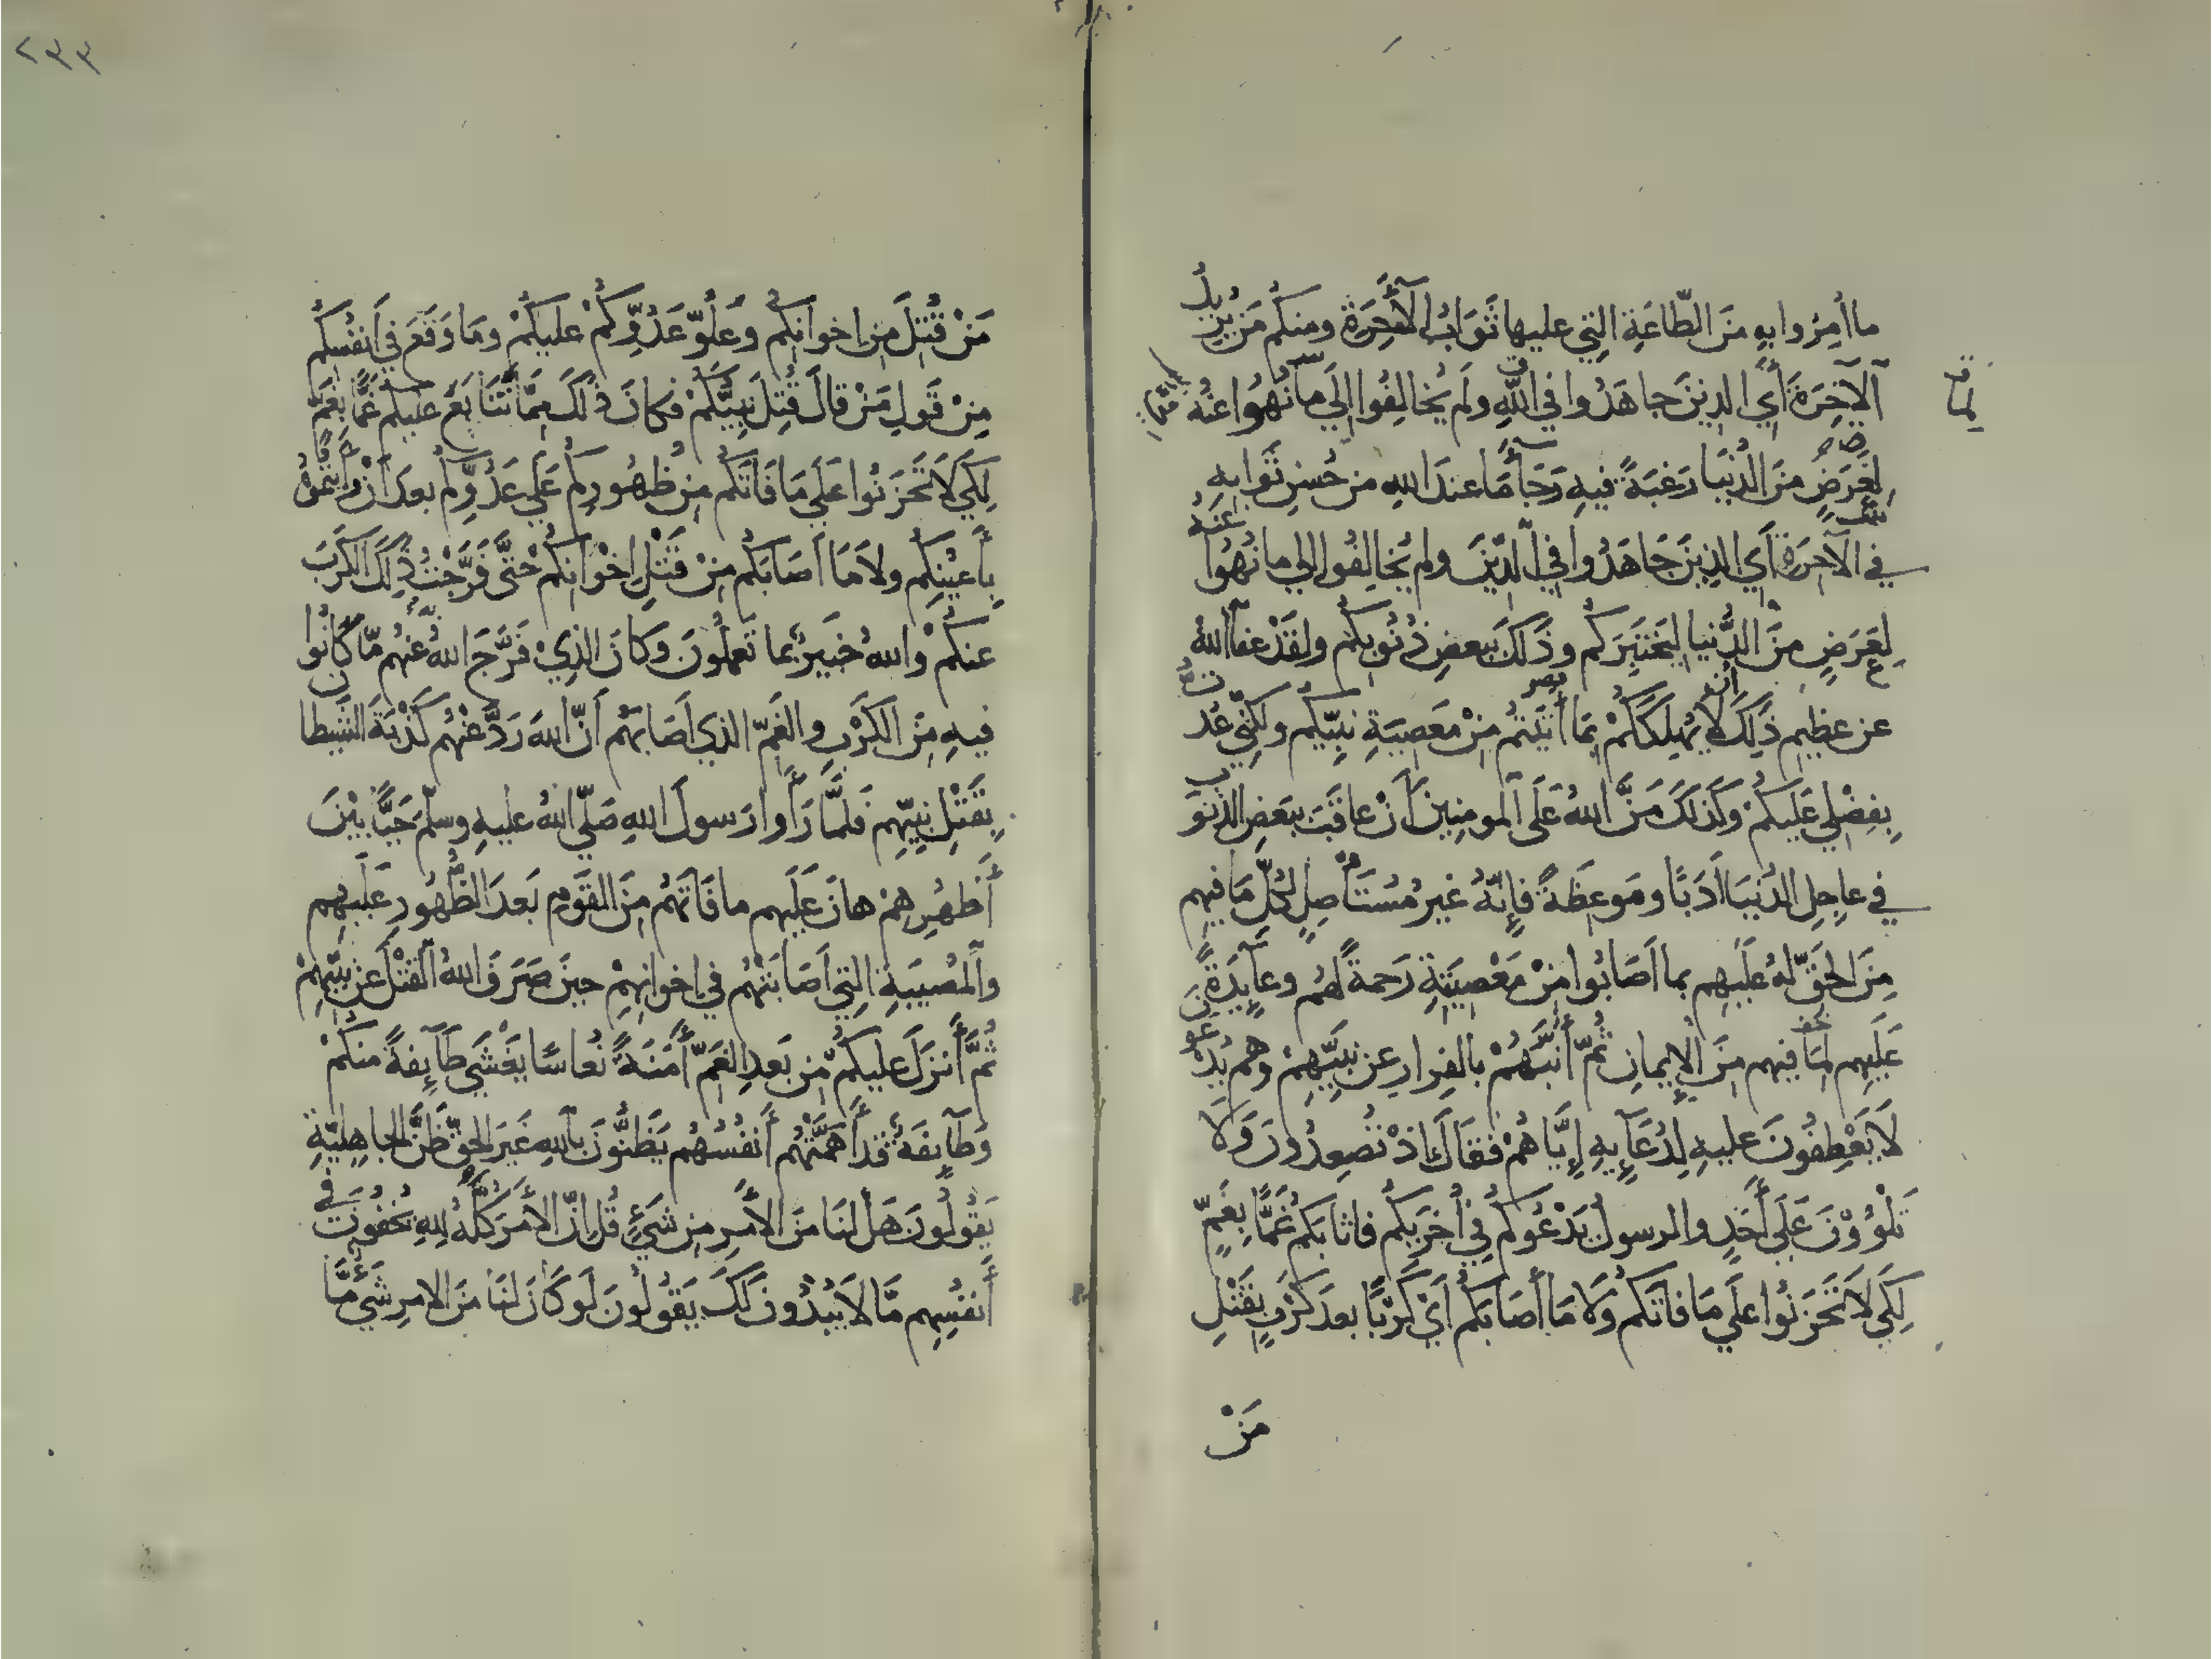 ما أُمِرُوا بِهِ مِنَ الطَّاعَةِ الَّتِي عليها ثَوَابُ الآخِرَةِ ومنكُم مَن يُرِيدُ
الآخِرَةَ أَيِ الذِينَ جاهَدُوا في اللَّهِ ولَم يُخالِفُوا إلَي مَا نُهُوا عَنْهُ
لِعَرَضٍ مِنَ الدُّنْيَا رَغْبَةً فِيهِ رَجَاءَ مَا عندَ اللهِ من حُسنِ ثَوَابِهِ
في الآخِرَةِ أَي الذِينَ جَاهَدُوا فِي الدِّينَ ولم يُخَالِفُوا إلي ما نُهُوا عَنْهُ
لِعَرَضٍ مِنَ الدُّنيا لِيَخْتَبِرَكُم وذَلَكَ بِبعضِ ذُنُوبِكُم ولقَدْ عفَا اللهُ
عن عظيمِ ذَلِكَ لَا يُهْلِكَكُمْ بِمَا أَتَيْتُم مِنْ مَعصِيَةِ نبِيِّكُم ولكِنِّي عُدْتُ
بِفضْلِي عَلَيكُمْ وكَذلَكَ مَنَّ اللهُ عَلَى المومِنِينَ أَنْ عاقَبَ بِبَعضِ الذنوَب
في عاجِلِ الدُنيَا أَدَبًا ومَوعِظَةً فإِنَّهُ غيرُ مُسْتَأْصِلٍ لكُلِّ مَا فيهِم
مِنَ الحَقِّ لهُ عَلَيهِم بما أَصَابُوا مِنْ مَعْصِيَتِهِ رَحمةً لهُم وعَآيِدَةً
عَلَيهِم لِمَا فِيهِم مِنَ الإِيمانِ ثُمّ أَنَّبَهُمْ بالفِرارِ عن نبِيِّهِمْ وهم يُدْعَونَ
لَا يَعْطِفُونَ عليهِ لِدُعَآيِهِ إِيَّاهُمْ فقَالَ إذْ تُصعِدُونَ وَلَا
تَلْوُونَ عَلَي أَحَدٍ والرسولُ يَدْعُوكُم فِي أُخرَيكُم فاثابَكُم غَمًّا بِغَمٍّ
لِكَي لَا تَحْزَنُوا علَي مَا فاتَكُم وَلَا مَا أَصَابَكُم أَيْ كَرْبًا بعدَ كَرْبٍ بِقَتْلِ
مَنْ
٢٣٣
مَنْ قُتِلَ مِن اخوانِكُم وَعُلُوّ عَدُوِّكُمْ عليكُمْ ومَا وَقَعَ فِي أَنفُسِكُم
مِنْ قَولِ مَنْ قالَ قُتِلَ نَبِيُّكُمْ فكانَ ذلَكَ مِمَّا تَتَابَعَ عليكُم غَمًّا بِغَمٍّ
لِكَي لَا تَحْزَنُوا عَلَي مَا فَاتَكُم مِن ظُهُورِكُم عَلَي عَدُوِّكُم بعدَ أَنْ رَأَيْتُمُوهُ
بِأَعيُنِكُم ولَا مَا أَصَابَكُم مِنْ قَتْلِ إخْوانِكُم حَتَّى فَرَّجْتُ ذَلِكَ الكَرْبَ
عنكُمْ واللهُ خَبِيرٌ بما تَعمَلُونَ وَكانَ الذِيْ فَرَّجَ اللهُ عَنْهُم مّا كَانُوا
فيهِ مِنَ الكَرْبِ والغَمِّ الذي أَصَابَهُم أَنَّ اللهَ رَدَّ عَنْهُم كَذْبَةَ الشيطان
بِقَتْلِ نبِيِّهِم فَلَمَّا رَأَوا رَسولَ اللهِ صَلَّي اللهُ عليهِ وسلَّمَ حَيًّا بَيْنَ
أَظهُرِهِمْ هانَ عَلَيهِم ما فَاتَهُم مِنَ القَومِ بَعدَ الظُّهُورِ عَلَيهِم
والمُصيبَةِ التِي أَصَابَتْهُم في إخوانِهِمْ حِينَ صَرَفَ اللهُ القَتْلَ عَن نبِيِّهِمْ
ثُمَّ أَنزَلَ عليكُم مّن بَعدِ الغَمِّ أَمَنَةً نُعاسًا يَغْشَي طَآيِفَةً منكُمْ
وَطَآيِفَةٌ قَد أَهَمَّتْهُم أَنفُسُهُم يَظُنُّونَ بِاللهِ غَيرَ الحَقِّ ظَنَّ الجاهِلِيَّةِ
يَقُولُونَ هَل لنَا مِنَ الأَمرِ مِن شَيْءٍ قُل إنّ الأَمرَ كُلَّهُ لِلهِ يُخفُونَ فِي
أَنفُسِهِم مَّا لَا يُبْدُونَ لَكَ يَقُولُونَ لَو كَانَ لنَا مِنَ الامرِ شَيءٌ مَّا